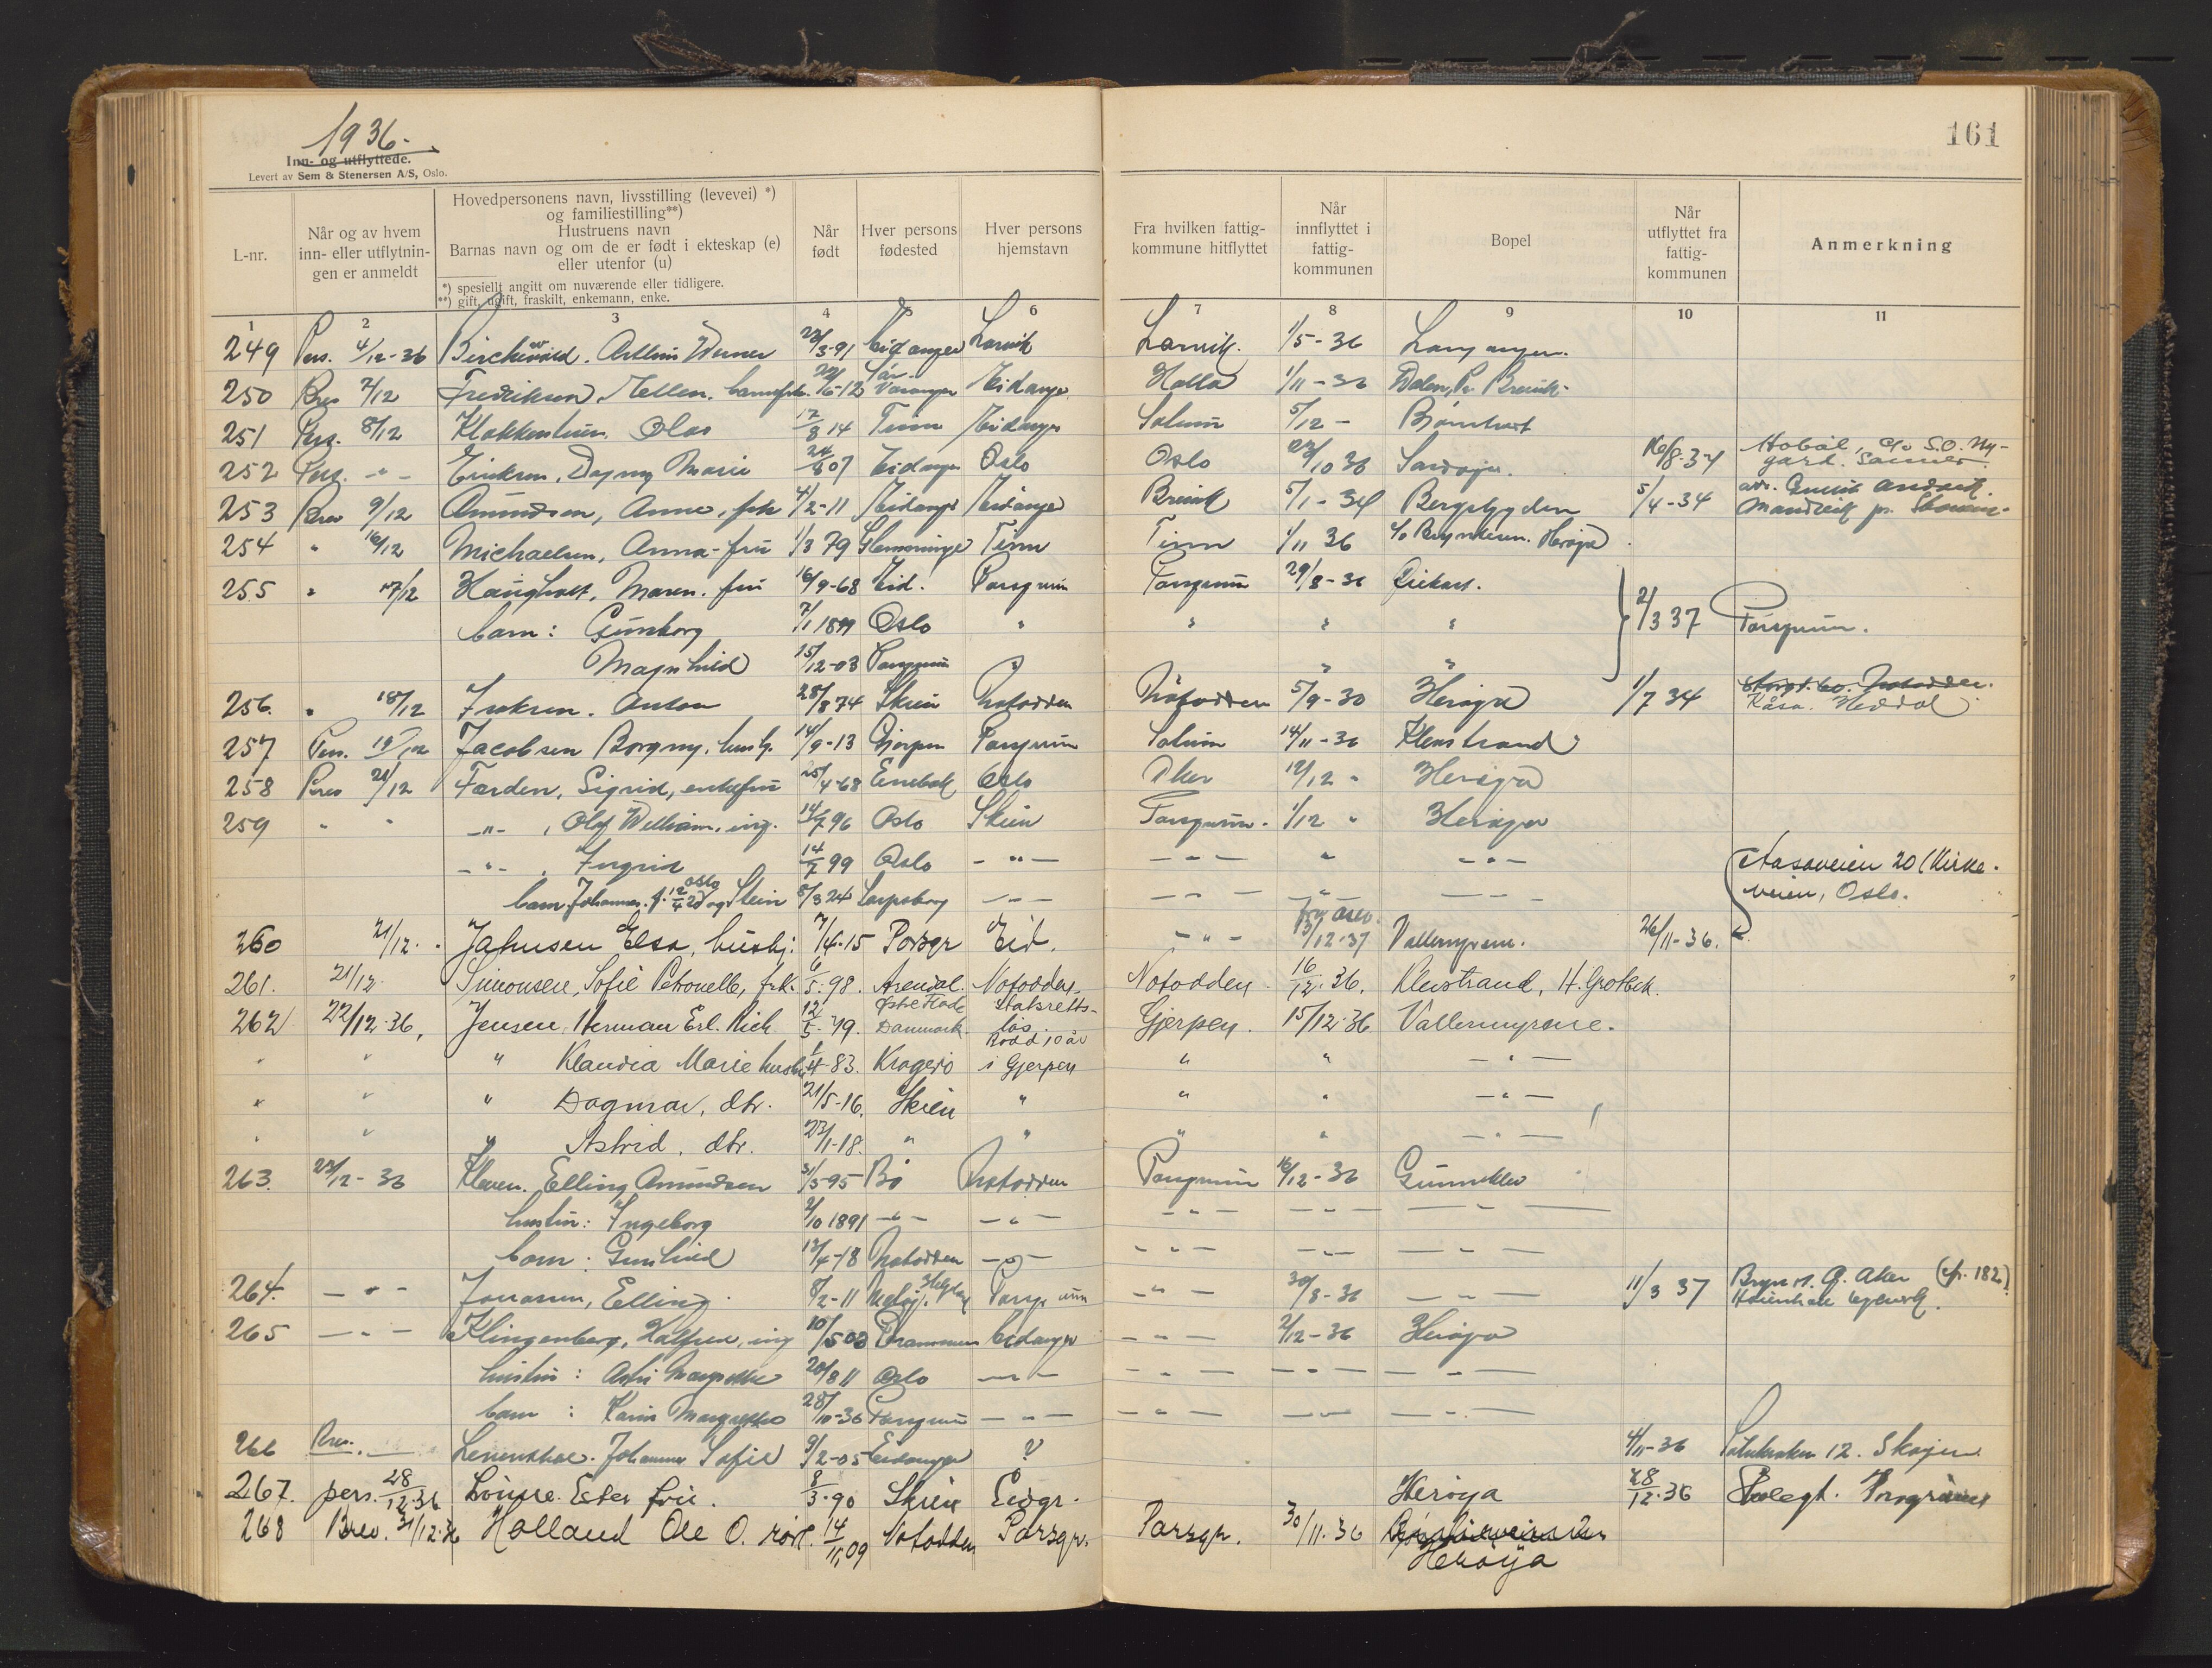 1936.
161
Inn- og utflyttede.
Levert av Sem & Stenersen A/S, Oslo.
L-nr.
Når og av hvem inn- eller utflytnin-gen er anmeldt
Hovedpersonens navn, livsstilling (levevei) *) og familiestilling**)
Hustruens navn
Barnas navn og om de er født i ekteskap (e) eller utenfor (u)
*) spesiellt angitt om nuværende eller tidligere.
**) gift, ugift, fraskilt, enkemann, enke.
Når født
Hver persons fødested
Hver persons hjemstavn
Fra hvilken fattig-kommune hitflyttet
Når innflyttet i fattig-kommunen
Bopel
Når utflyttet fra fattig-kommunen
Anmerkning
1 2 3 4 5 6 7 8 9 10 11
249 Pers. 4/12-36 Arthur Werner 3-91 Eidanger Larvik Larvik. 1/5-36 Langangen.
250 Brev 7/12 Fredriksen, Mellen. 12 Sør Varanger Eidanger Holla 1/11-36 Dalen, Pr. Brevik
251 Pers. 8/12 Olav 17/8 14 Tinn Eidanger Solum 5/12 -
252 Pers. -"- Eriksen, Dagny Marie 24/8 07 Eidanger Oslo Oslo 10 36 16/8-37 Hobøl, c/o S.O. Ny-gård. Sonner.
253 Brev 9/12 Amundsen, Anne, frk 4/2-11 Eidanger Eidanger Brevik 5/1-34 Bergsbygden 5/4-34
254 " 16/12 Michaelsen, Anna - fru 1/3 79 Tinn Tinn 1/11 36 c/o Herøya
255 " 17/12 Haugholt, Maren. fru 16/9-68 Eid. Porsgrunn Porsgrunn 29/8-36 21/3 37 Porsgrunn.
barn: Gunborg 7/1 1899 Oslo " " " "
Magnhild 15/12-03 Porsgrunn " " "
256. " 18/12 Isaksen. Anton 28/8 74 Skien Notodden Notodden 5/9-30 Herøya 1/7 34 Heddal
257 Pers. 19/12 Jacobsen Borgny. hush. 14/9-13 Gjerpen Porsgrunn Solum 14/11-36 Klevstrand
258 Brev 21/12 Farden, Sigrid, enkefru 25/4-68 Enebak Oslo Aker 12/12 " Herøya
259 " " -"-, Olaf William, ing. 14/7 96 Oslo Skien Porsgrunn. 1/12 " Herøya
-"-, Ingrid 14/7 99 Oslo -"- -"- " -"- Aasaveien 20 (Kirke-veien, Oslo.
barn Johannes f. 12/4 Oslo og Stein 8/3 24 Sarpsborg -"- -"- " -"-
260 21/12. Jahnsen Elsa, hushj. 7/4-15 Porsgr Eid. -"- 13/12-37 Vallermyrene. 26/11-36.
261. 21/12. Simonsen, Sofie Petronelle, frk. 6/5.98. Arendal. Notodden. Notodden 16/12.36. Klevstrand, H. Grotbek.
262 22/12.36. Jensen, Herman Erl. Rich 12/5.79. Danmark. Statsretts-løs Bodd 10 år Gjerpen. 15/12.36 Vallermyrene.
" " " Klaudia Marie hustru 1/4-83. Kragerø i Gjerpen " " -"-
" " " Dagmar, dtr. 21/5-16. Skien " " " -"-
" " " Astrid, dtr. 23/1-18. " " " " -"-
263. 23/12-36 Kleven. Elling Amundsen 31/5-95 Bø Notodden Porsgrunn 16/12-36 Gunneklev
hustru: Ingeborg 2/10 1891 -"- -"- -"- -"- -"-
barn: Gunhild 13/4-18 Notodden -"- -"- -"- -"-
264. -"- Jonassen, Elling 8/2-11 Meløy. Helgeland Porsgrunn -"- 30/8-36 -"- 11/3 37 Bryn st. Ø. Aker (cfr. 182)
265 -"- Klingenberg, Halfred, ing 10/5 03 Drammen Eidanger -"- 2/12-36 Herøya
hustru: Margrethe 20/8 11 Oslo -"- -"- -"- -"-
barn: Karin Margrethe 28/10-36 Porsgrunn -"- -"- -"- -"-
266 Brev. Johanne Sofie 9/2-05 Eidanger ? 4/11-36 12. Skøyen
267. pers. 28/12.36 Louise Ester fru. 8/3.90 Skien Eidgr. Herøya 28/12.36 Porsgrunn
268 Brev. 31/12.36 Holland Ole O. rørl. 14/11.09 Notodden Porsgr. Porsgr. 30/11.36
Herøya